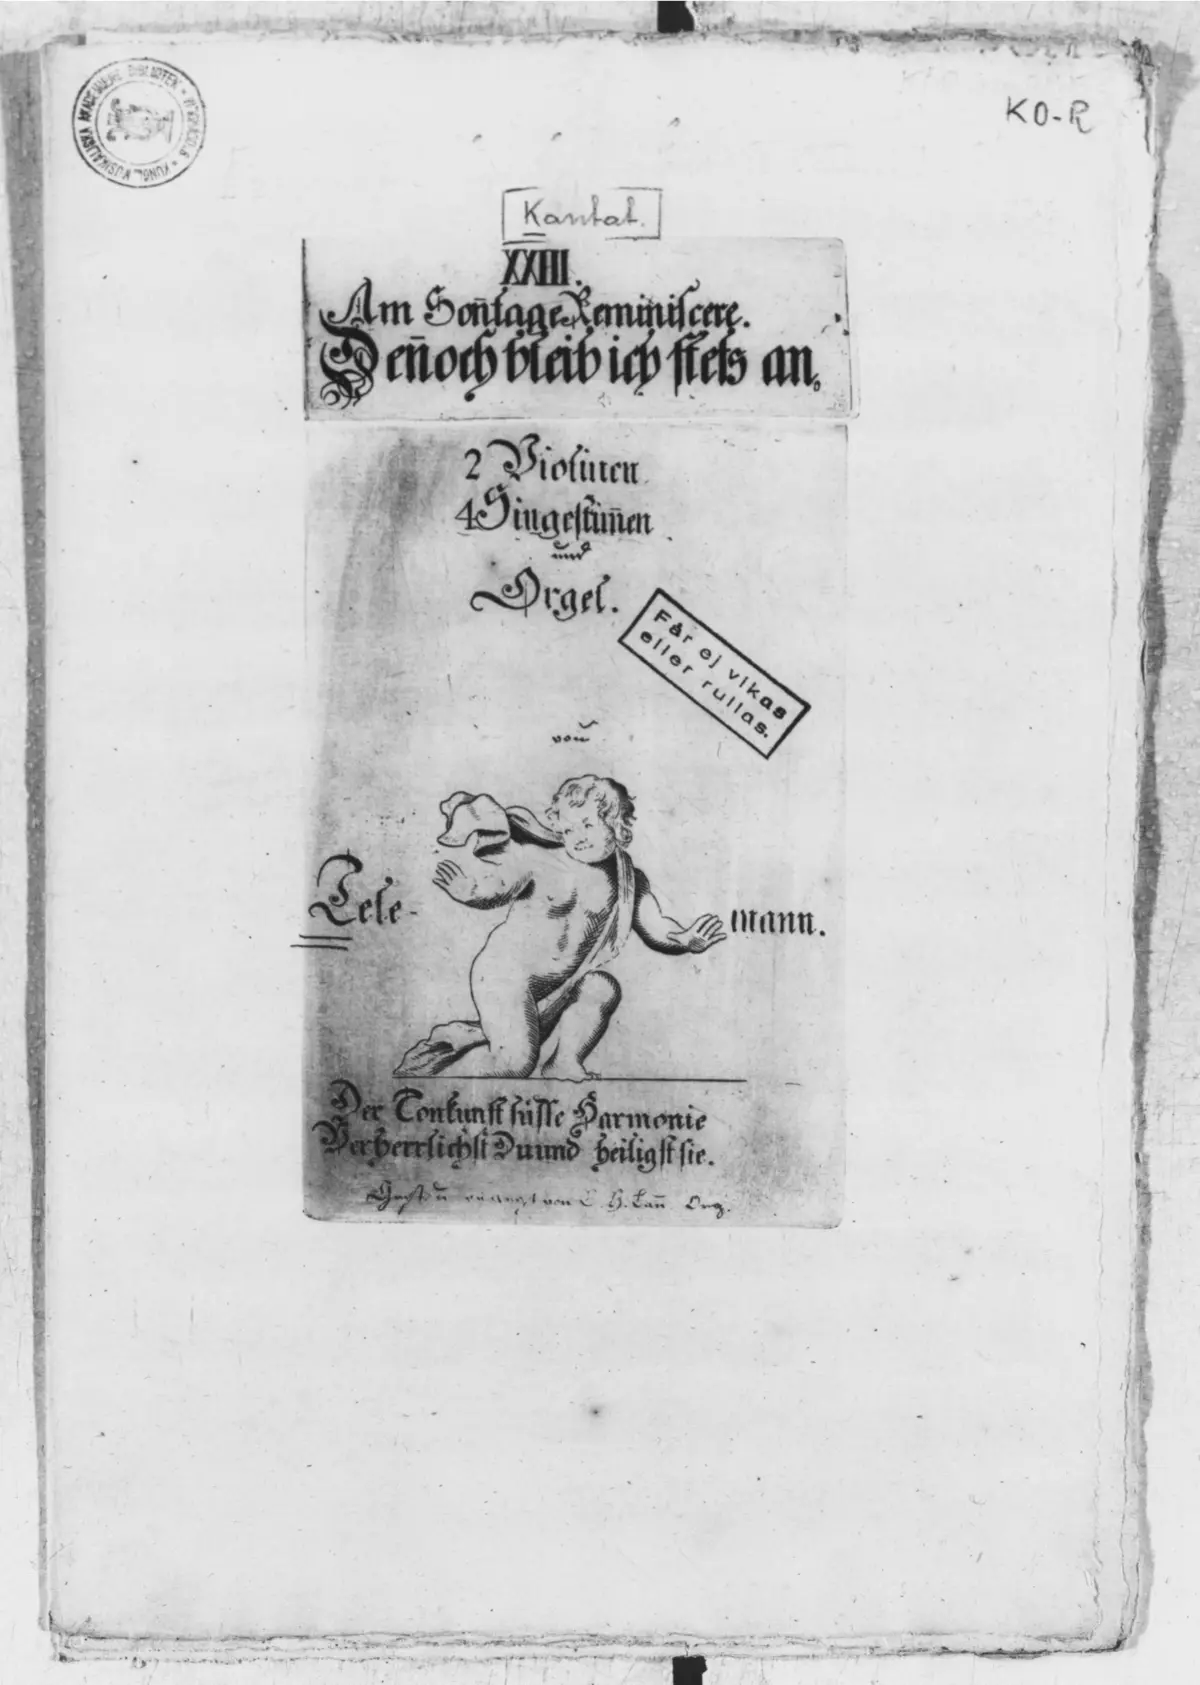 KUNGL. MUSIKALISKA AKADEMIENS BIBLIOTEK
KO-R
Kantat.
XXIIII.
Am Son̄tage Reminiſcere.
Den̄och bleib ich ſtets an.
2 Violinen
4 Singeſtim̄en
und
Orgel.
Får ej vikas
eller rullas.
von
Tele-
mann.
Der Tonkunſt ſüſſe Harmonie
Verherrlichſt Du und heiligſt ſie.
von C. H. Org.